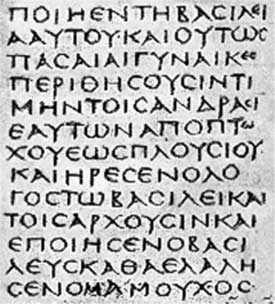 ΠΟΙΗΕΝΤΗΒΑϹΙΛΕΙ
ΑΑΥΤΟΥ·ΚΑΙΟΥΤΩϹ
ΠΑϹΑΙΑΙΓΥΝΑΙΚΕϹ
ΠΕΡΙΘΗϹΟΥϹΙΝΤΙ
ΜΗΝΤΟΙϹΑΝΔΡΑϹΙ
ΕΑΥΤΩΝΑΠΟΠΤΩ
ΧΟΥΕΩϹΠΛΟΥϹΙΟΥ
ΚΑΙΗΡΕϹΕΝΟΛΟ
ΓΟϹΤΩΒΑϹΙΛΕΙΚΑΙ
ΤΟΙϹΑΡΧΟΥϹΙΝΚΑΙ
ΕΠΟΙΗϹΕΝΟΒΑϹΙ
ΛΕΥϹΚΑΘΑΕΛΑΛΗ
ϹΕΝΟΜΑΜΟΥΧΟϹ·